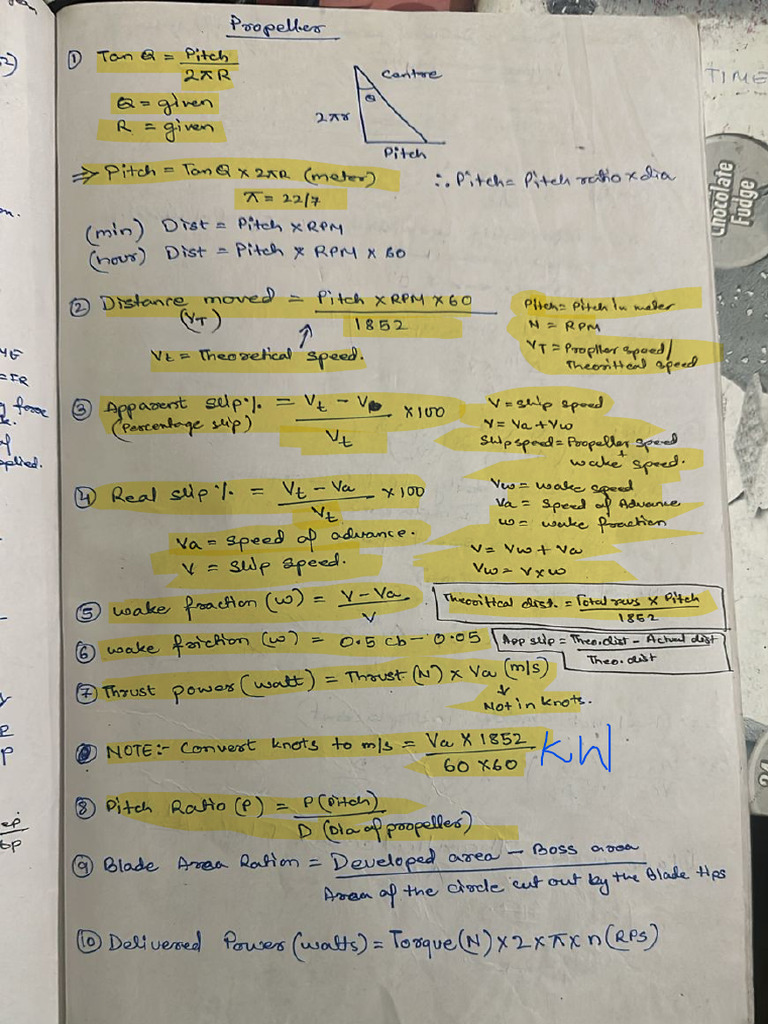 Propeller
① Tan Q = Pitch / 2πR
Q = given
R = given
Centre
θ
2πr
Pitch
⇒ Pitch = Tan Q × 2πR (meter)
π = 22/7
∴ Pitch = Pitch ratio × dia
(min) Dist = Pitch × RPM
(hour) Dist = Pitch × RPM × 60
② Distance moved = Pitch × RPM × 60 / 1852
(VT)
Vt = Theoretical speed.
Pitch = Pitch in meter
N = RPM
VT = Propller speed/
Theorittcal speed
③ Apparent slip % = Vt - V / Vt × 100
(Percentage slip)
V = ship speed
V = Va + Vw
Ship speed = Propeller speed
+
wake speed.
④ Real slip % = Vt - Va / Vt × 100
Va = speed of advance.
V = ship speed.
Vw = wake speed
Va = Speed of Advance
w = wake fraction
V = Vw + Va
Vw = V × w
⑤ wake fraction (w) = V - Va / V
Theorittcal dist. = Total revs × Pitch / 1852
⑥ wake friction (w) = 0.5 cb - 0.05
App slip = Theo.dist - Actual dist / Theo. dist
⑦ Thrust power (watt) = Thrust (N) × Va (m/s)
↓
Not in knots.
NOTE:- Convert knots to m/s = Va × 1852 / 60 × 60
KW
⑧ Pitch Ratio (P) = P (Pitch) / D (Dia of propeller)
⑨ Blade Area Ration = Developed area - Boss area / Area of the circle cut out by the Blade tips
⑩ Delivered Power (watts) = Torque (N) × 2 × π × n (RPS)
TIME
Chocolate
Fudge
24